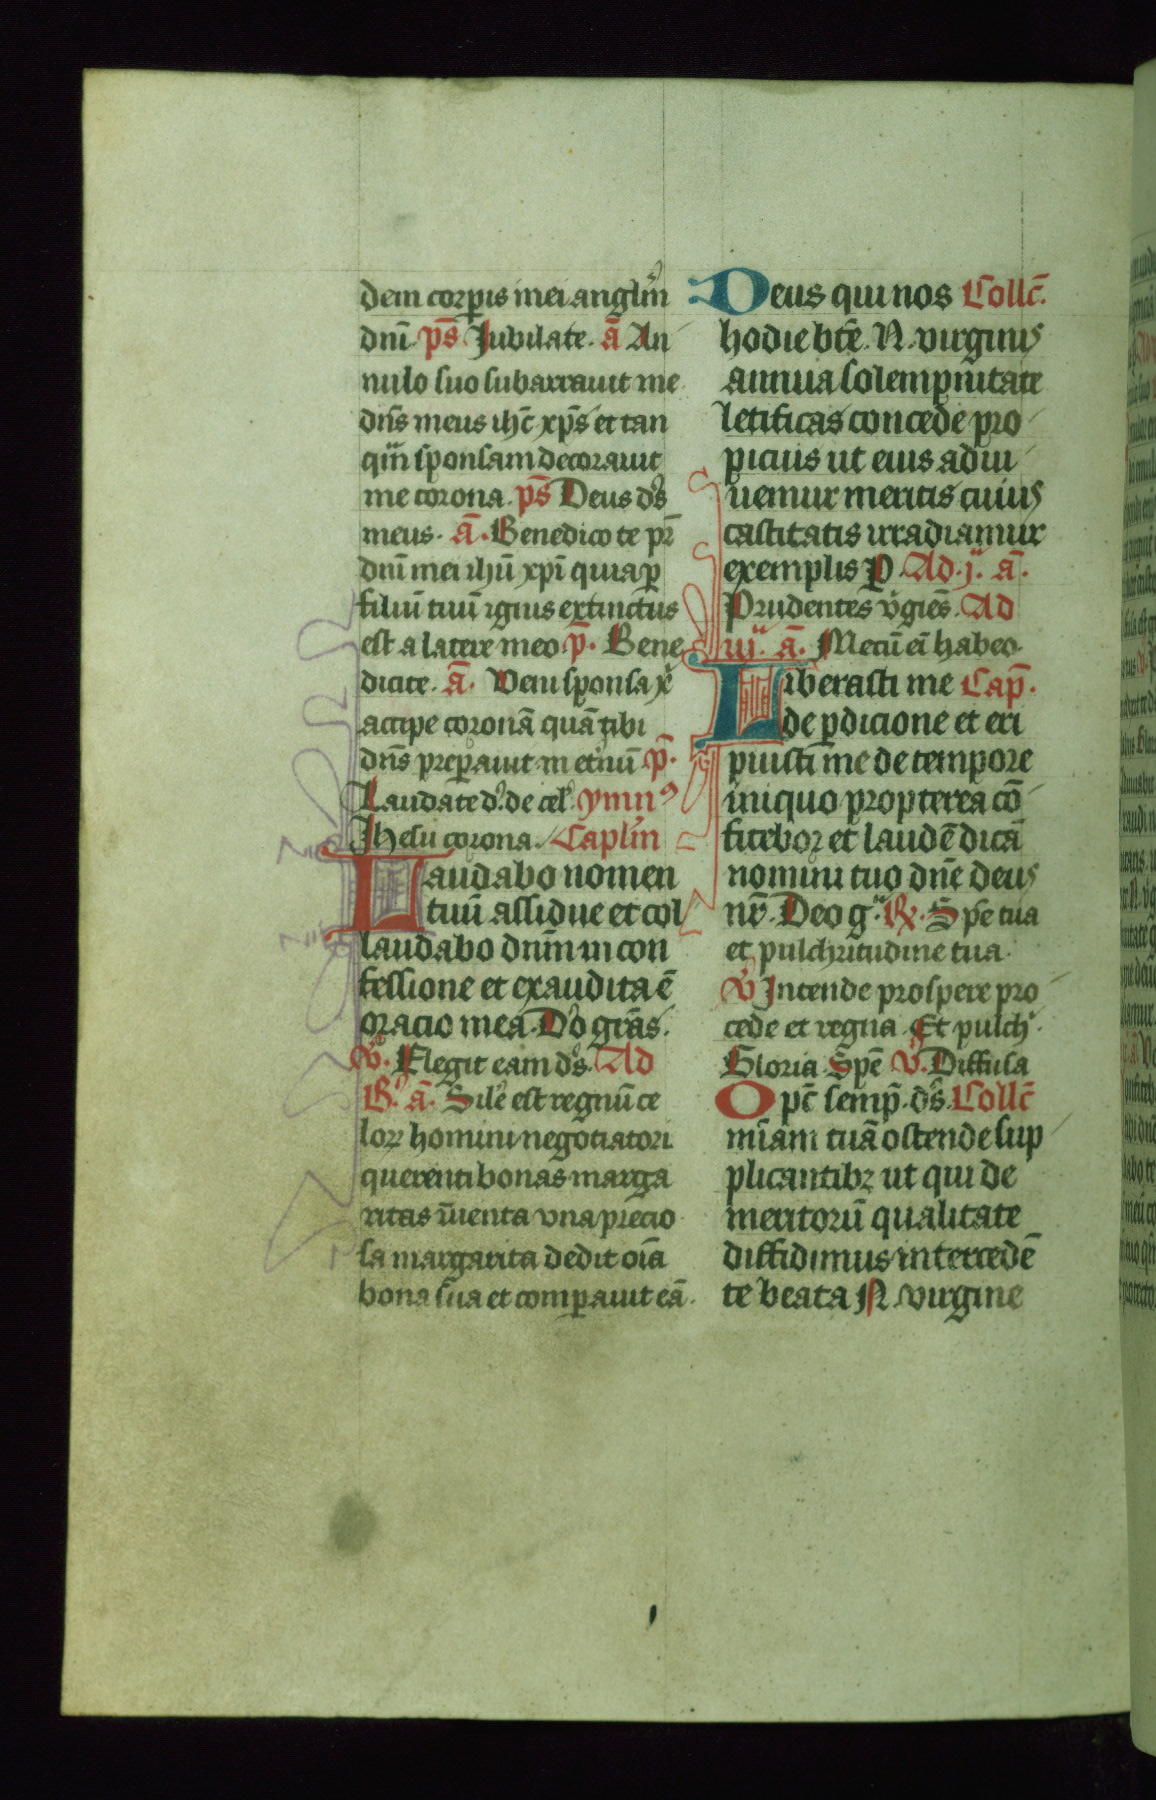 dem corpis mei anglim
dni. ps Jubilate. ā An
nulo suo subarrauit me
dns meus ihc xps et tan
qm sponsam decorauit
me corona. ps Deus ds
meus. ā. Benedico te pr
dni mei ihu xpi quia p
filiū tuū ignis extinctus
est a latere meo. p. Bene
dicite. ā. Veni sponsa x
accipe coronā quā tibi
dns preparauit in eternū p.
Laudate d. de cel. ymn9
Jhesu corona. Caplm
Laudabo nomen
tuū assidue et col
laudabo dnm in con
fessione et exaudita ē
oracio mea. Do gras.
v. Elegit eam ds. Ad
B. ā. Sile est regnū ce
lorꝝ homini negotiatori
querenti bonas marga
ritas inuenta vna precio
sa margarita dedit oīa
bona sua et comparauit eā.
Deus qui nos Collc.
hodie bte. N. virginis
annua solempnitate
letificas concede pro
picius ut eius adiu
uemur meritis cuius
castitatis irradiamur
exemplis P. Ad .j. ā.
Prudentes vgies. Ad
iij. ā. Mecū ei habeo.
Liberasti me Cap.
de pdicione et eri
puisti me de tempore
iniquo propterea cō
fitebor et laudē dicā
nomini tuo dne deus
nr. Deo g. R. Spe tua
et pulchritudine tua.
v Intende prospere pro
cede et regna. Et pulch.
Gloria. Spe v. Diffusa
Opc semp. ds. Collc
miam tuā ostende sup
plicantibꝫ ut qui de
meritorū qualitate
diffidimus intercedē
te beata N. virgine